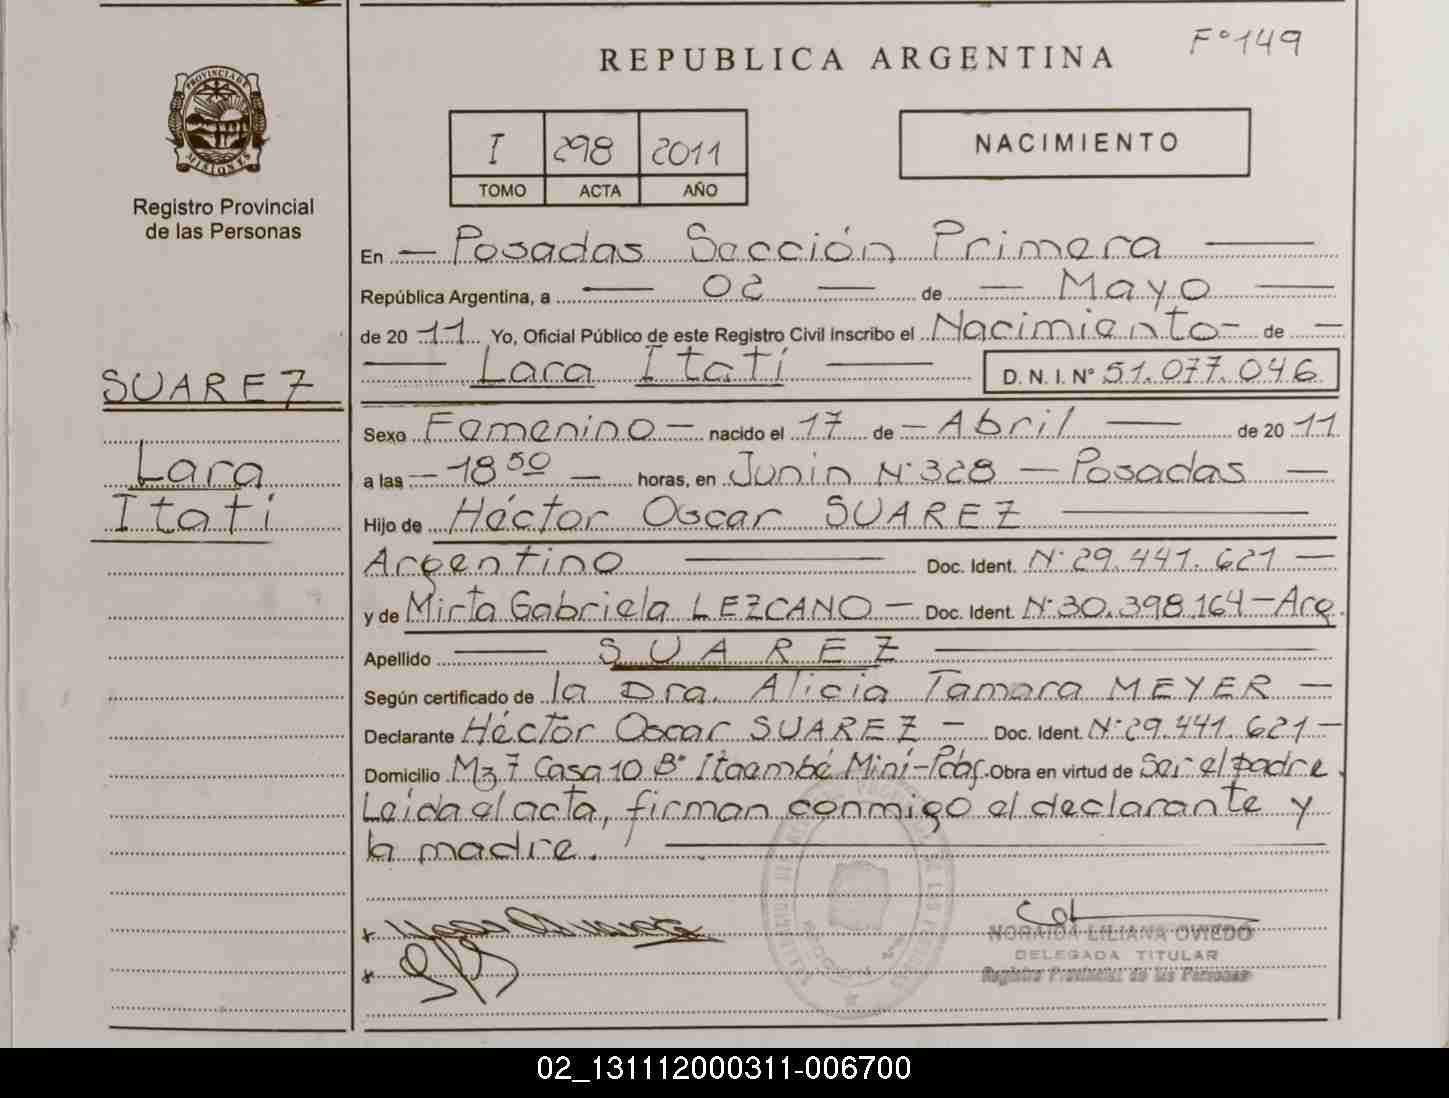 F° 149
REPUBLICA ARGENTINA
PROVINCIA DE
MISIONES
I 298 2011
TOMO ACTA AÑO
NACIMIENTO
Registro Provincial
de las Personas
En — Posadas Sección Primera —
República Argentina, a — 02 — de — Mayo —
de 20 11 Yo, Oficial Público de este Registro Civil inscribo el Nacimiento - de —
— Lara Itatí — D. N. I. N° 51.077.046
SUAREZ
Lara
Itatí
Sexo Femenino — nacido el 17 de — Abril — de 20 11
a las — 18 50 — horas, en Junin N° 328 — Posadas —
Hijo de Héctor Oscar SUAREZ —
Argentino — Doc. Ident. N° 29.441.621 —
y de Mirta Gabriela LEZCANO — Doc. Ident. N° 30.398.164 - Arg.
Apellido — SUAREZ —
Según certificado de la Dra. Alicia Tamara MEYER —
Declarante Héctor Oscar SUAREZ — Doc. Ident. N° 29.441.621 —
Domicilio Mz 7 Casa 10 B° Itaembé Miní - Pdas. Obra en virtud de Ser el padre.
Leída el acta, firman conmigo el declarante y
la madre. —
NORAIDA LILIANA OVIEDO
DELEGADA TITULAR
Registro Provincial de las Personas
02_131112000311-006700